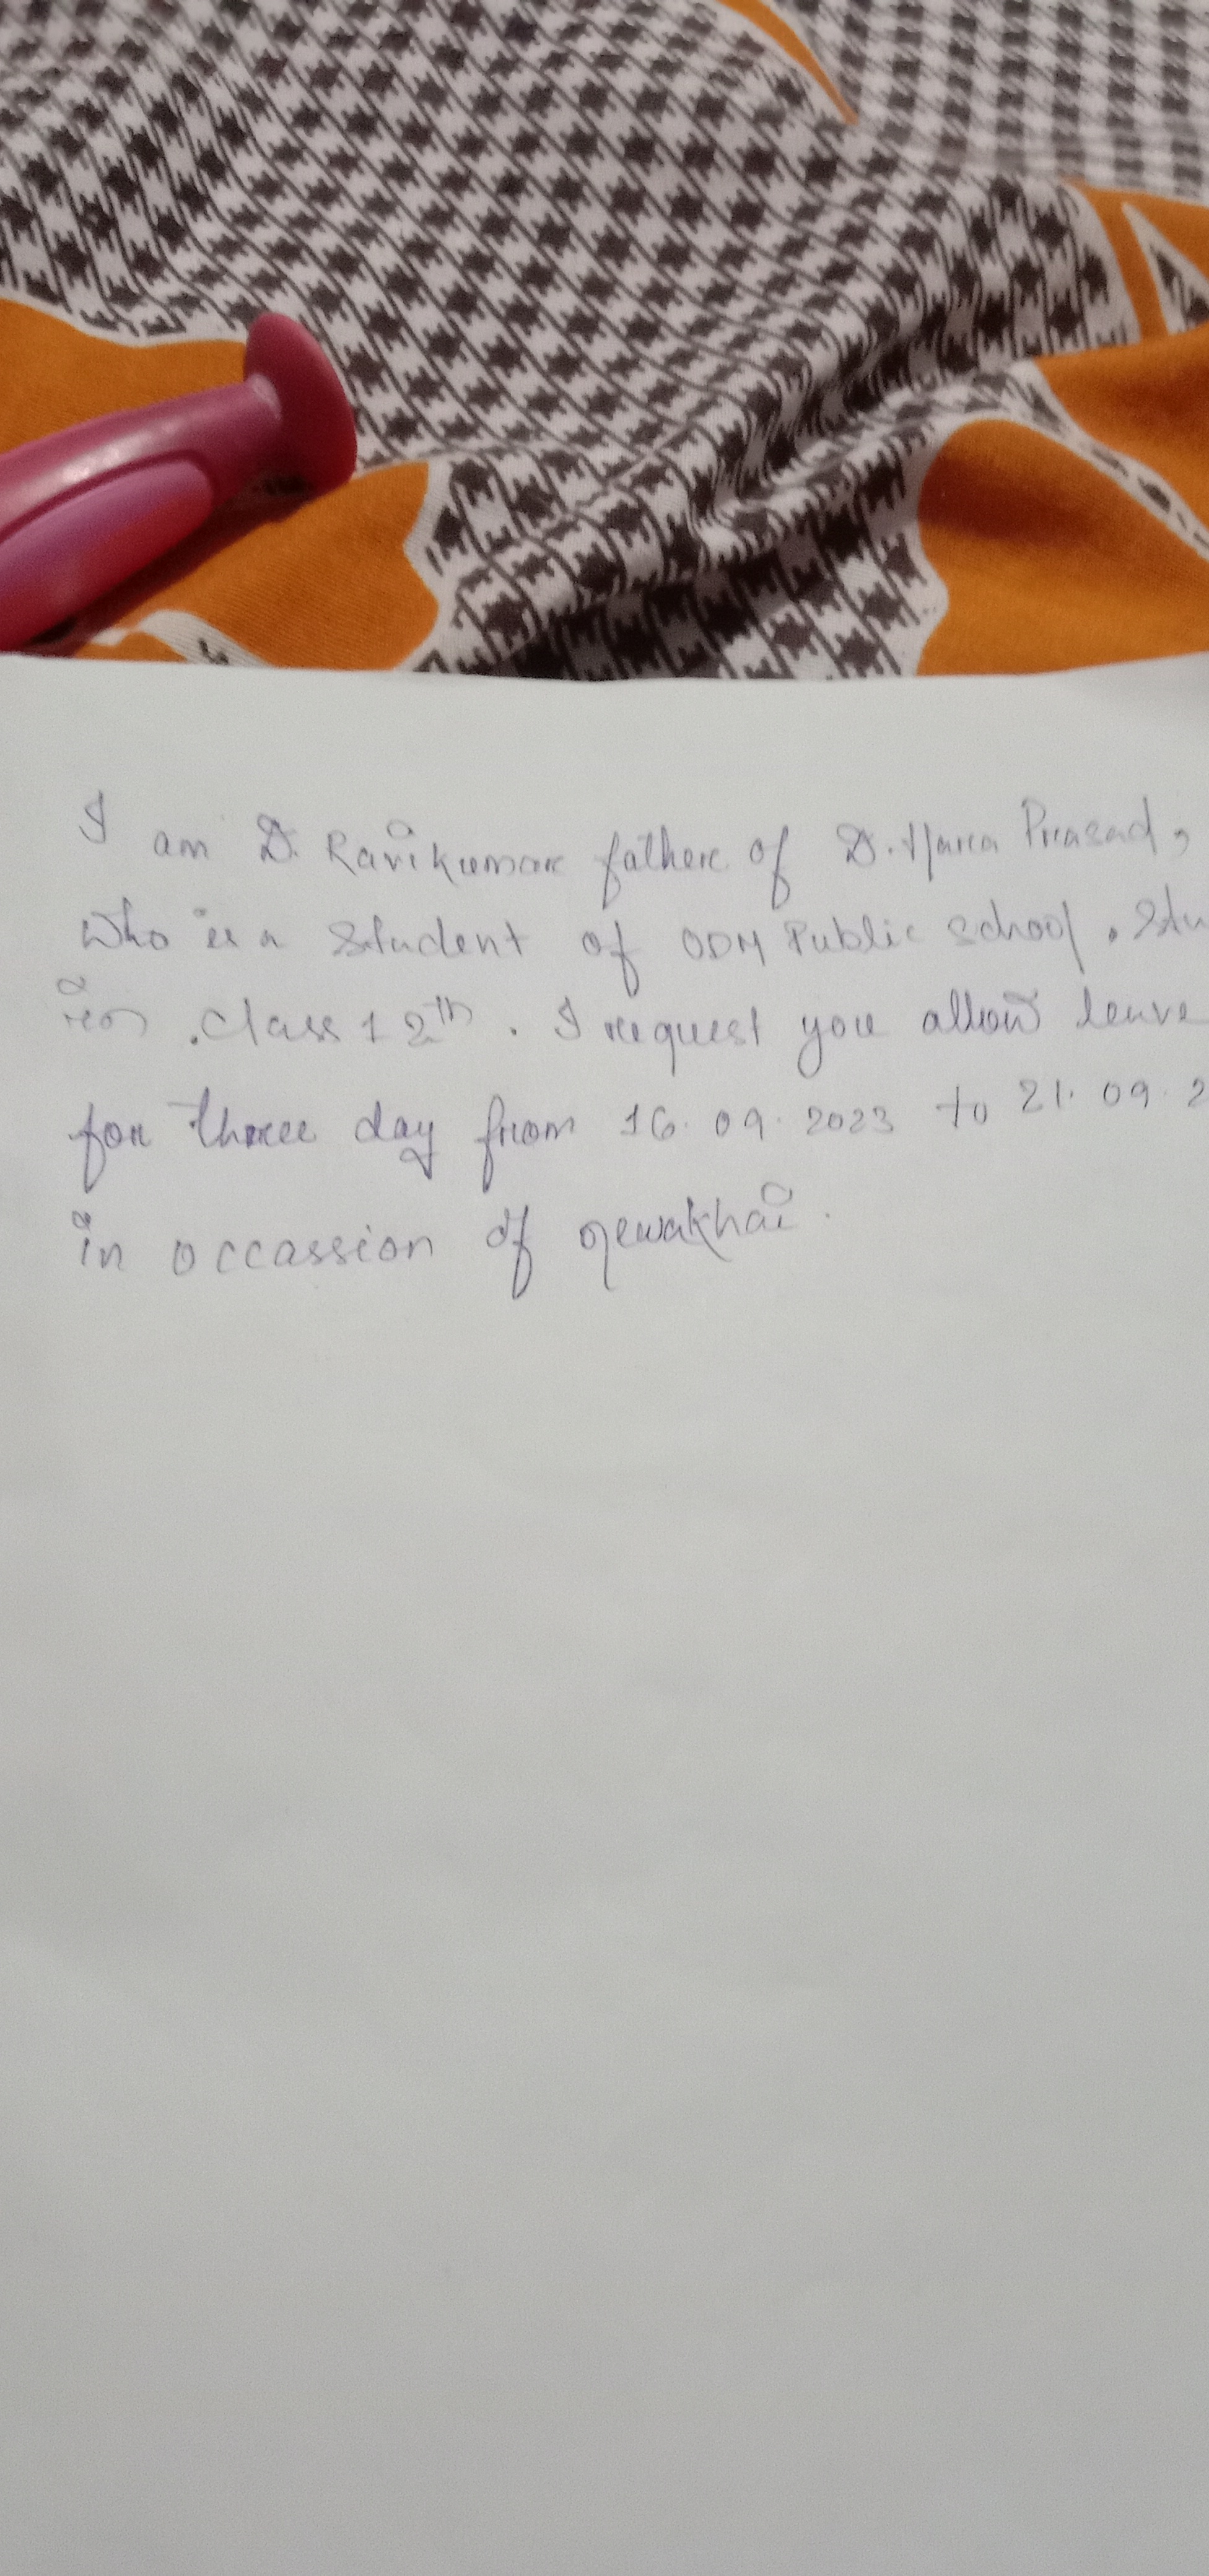 I am D. Ravikumar father of D. Hara Prasad,
who is a Student of ODM Public School. Stu
in. Class 12th. I request you allow leave
for three day from 16.09.2023 to 21.09.2
in occassion of newakhai.